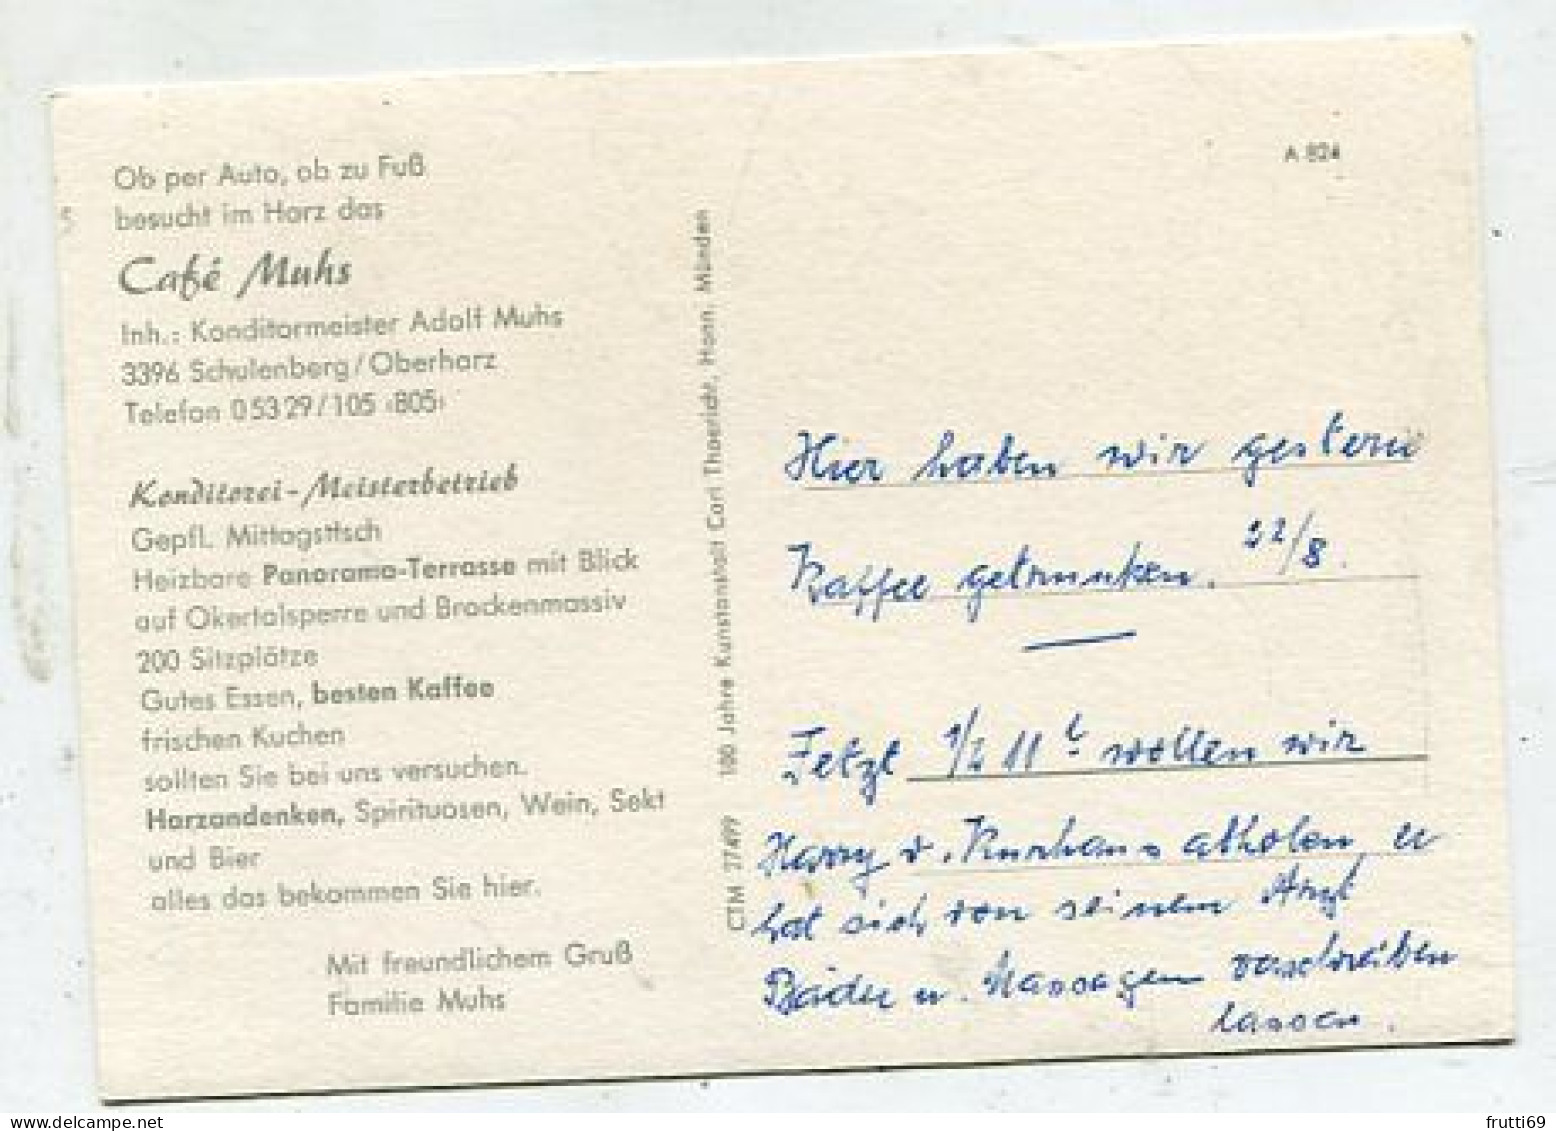 Ob per Auto, ob zu Fuß
besucht im Harz das
Café Muhs
Inh.: Konditormeister Adolf Muhs
3396 Schulenberg/Oberharz
Telefon 0 53 29/105 ‹805›
Konditorei-Meisterbetrieb
Gepfl. Mittagstisch
Heizbare Panorama-Terrasse mit Blick
auf Okertalsperre und Brockenmassiv
200 Sitzplätze
Gutes Essen, besten Kaffee
frischen Kuchen
sollten Sie bei uns versuchen.
Harzandenken, Spirituosen, Wein, Sekt
und Bier
alles das bekommen Sie hier.
Mit freundlichem Gruß
Familie Muhs
CTM 77499 100 Jahre Kunstanstalt Carl Thoericht, Hann. Münden
A 824
Hier haben wir gestern
Kaffee getrunken. 22/8.
Jetzt 1/2 11 wollen wir
Harry v. Kurhaus abholen, er
hat sich von seinem Arzt
Bäder u. Massagen verschreiben
lassen.
frutti69